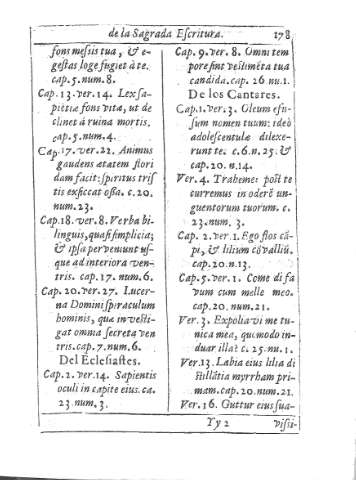 de la Sagrada Escritura. 178
fons messis tua, & e-
gestas lõge fugiet à te.
cap. 5. num. 8.
Cap. 13. ver. 14. Lex sa-
pietiæ fons vitæ, ut de
clinet à ruina mortis.
cap. 5. num. 4.
Cap. 17. ver. 22. Animus
gaudens ætatem flori
dam facit: spiritus tris
tis exsiccat ossa. c. 20.
num. 23.
Cap. 18. ver. 8. Verba bi-
linguis, quasi simplicia;
& ipsa perveniunt us-
que ad interiora ven-
tris. cap. 17. num. 6.
Cap. 20. ver. 27. Lucer-
na Domini spiraculum
hominis, quæ investi-
gat omnia secreta ven
tris. cap. 7. num. 6.
Del Eclesiastes.
Cap. 2. ver. 14. Sapientis
oculi in capite eius. ca.
23. num. 3.
Cap. 9. ver. 8. Omni tem
pore sint vestimēta tua
candida. cap. 26 nu. 1.
De los Cantares.
Cap. 1. ver. 3. Oleum efu-
sum nomen tuum: ideò
adolescentulæ dilexe-
runt te. c. 6. n. 25. &
cap. 20. n. 14.
Ver. 4. Traheme: post te
curremus in odorē un-
guentorum tuorum. c.
23. num. 3.
Cap. 2. ver. 1. Ego flos cã-
pi, & lilium cõvalliũ.
cap. 20. n. 13.
Cap. 5. ver. 1. Come di fa
vum cum melle meo.
cap. 20. num. 21.
Ver. 3. Expoliavi me tu-
nica mea, quomodo in-
duar illa? c. 25. nu. 1.
Ver. 13. Labia eius lilia di
stillãtia myrrham pri-
mam. cap. 20. num. 21.
Ver. 16. Guttur eius sua-
Yy 2 vissi-